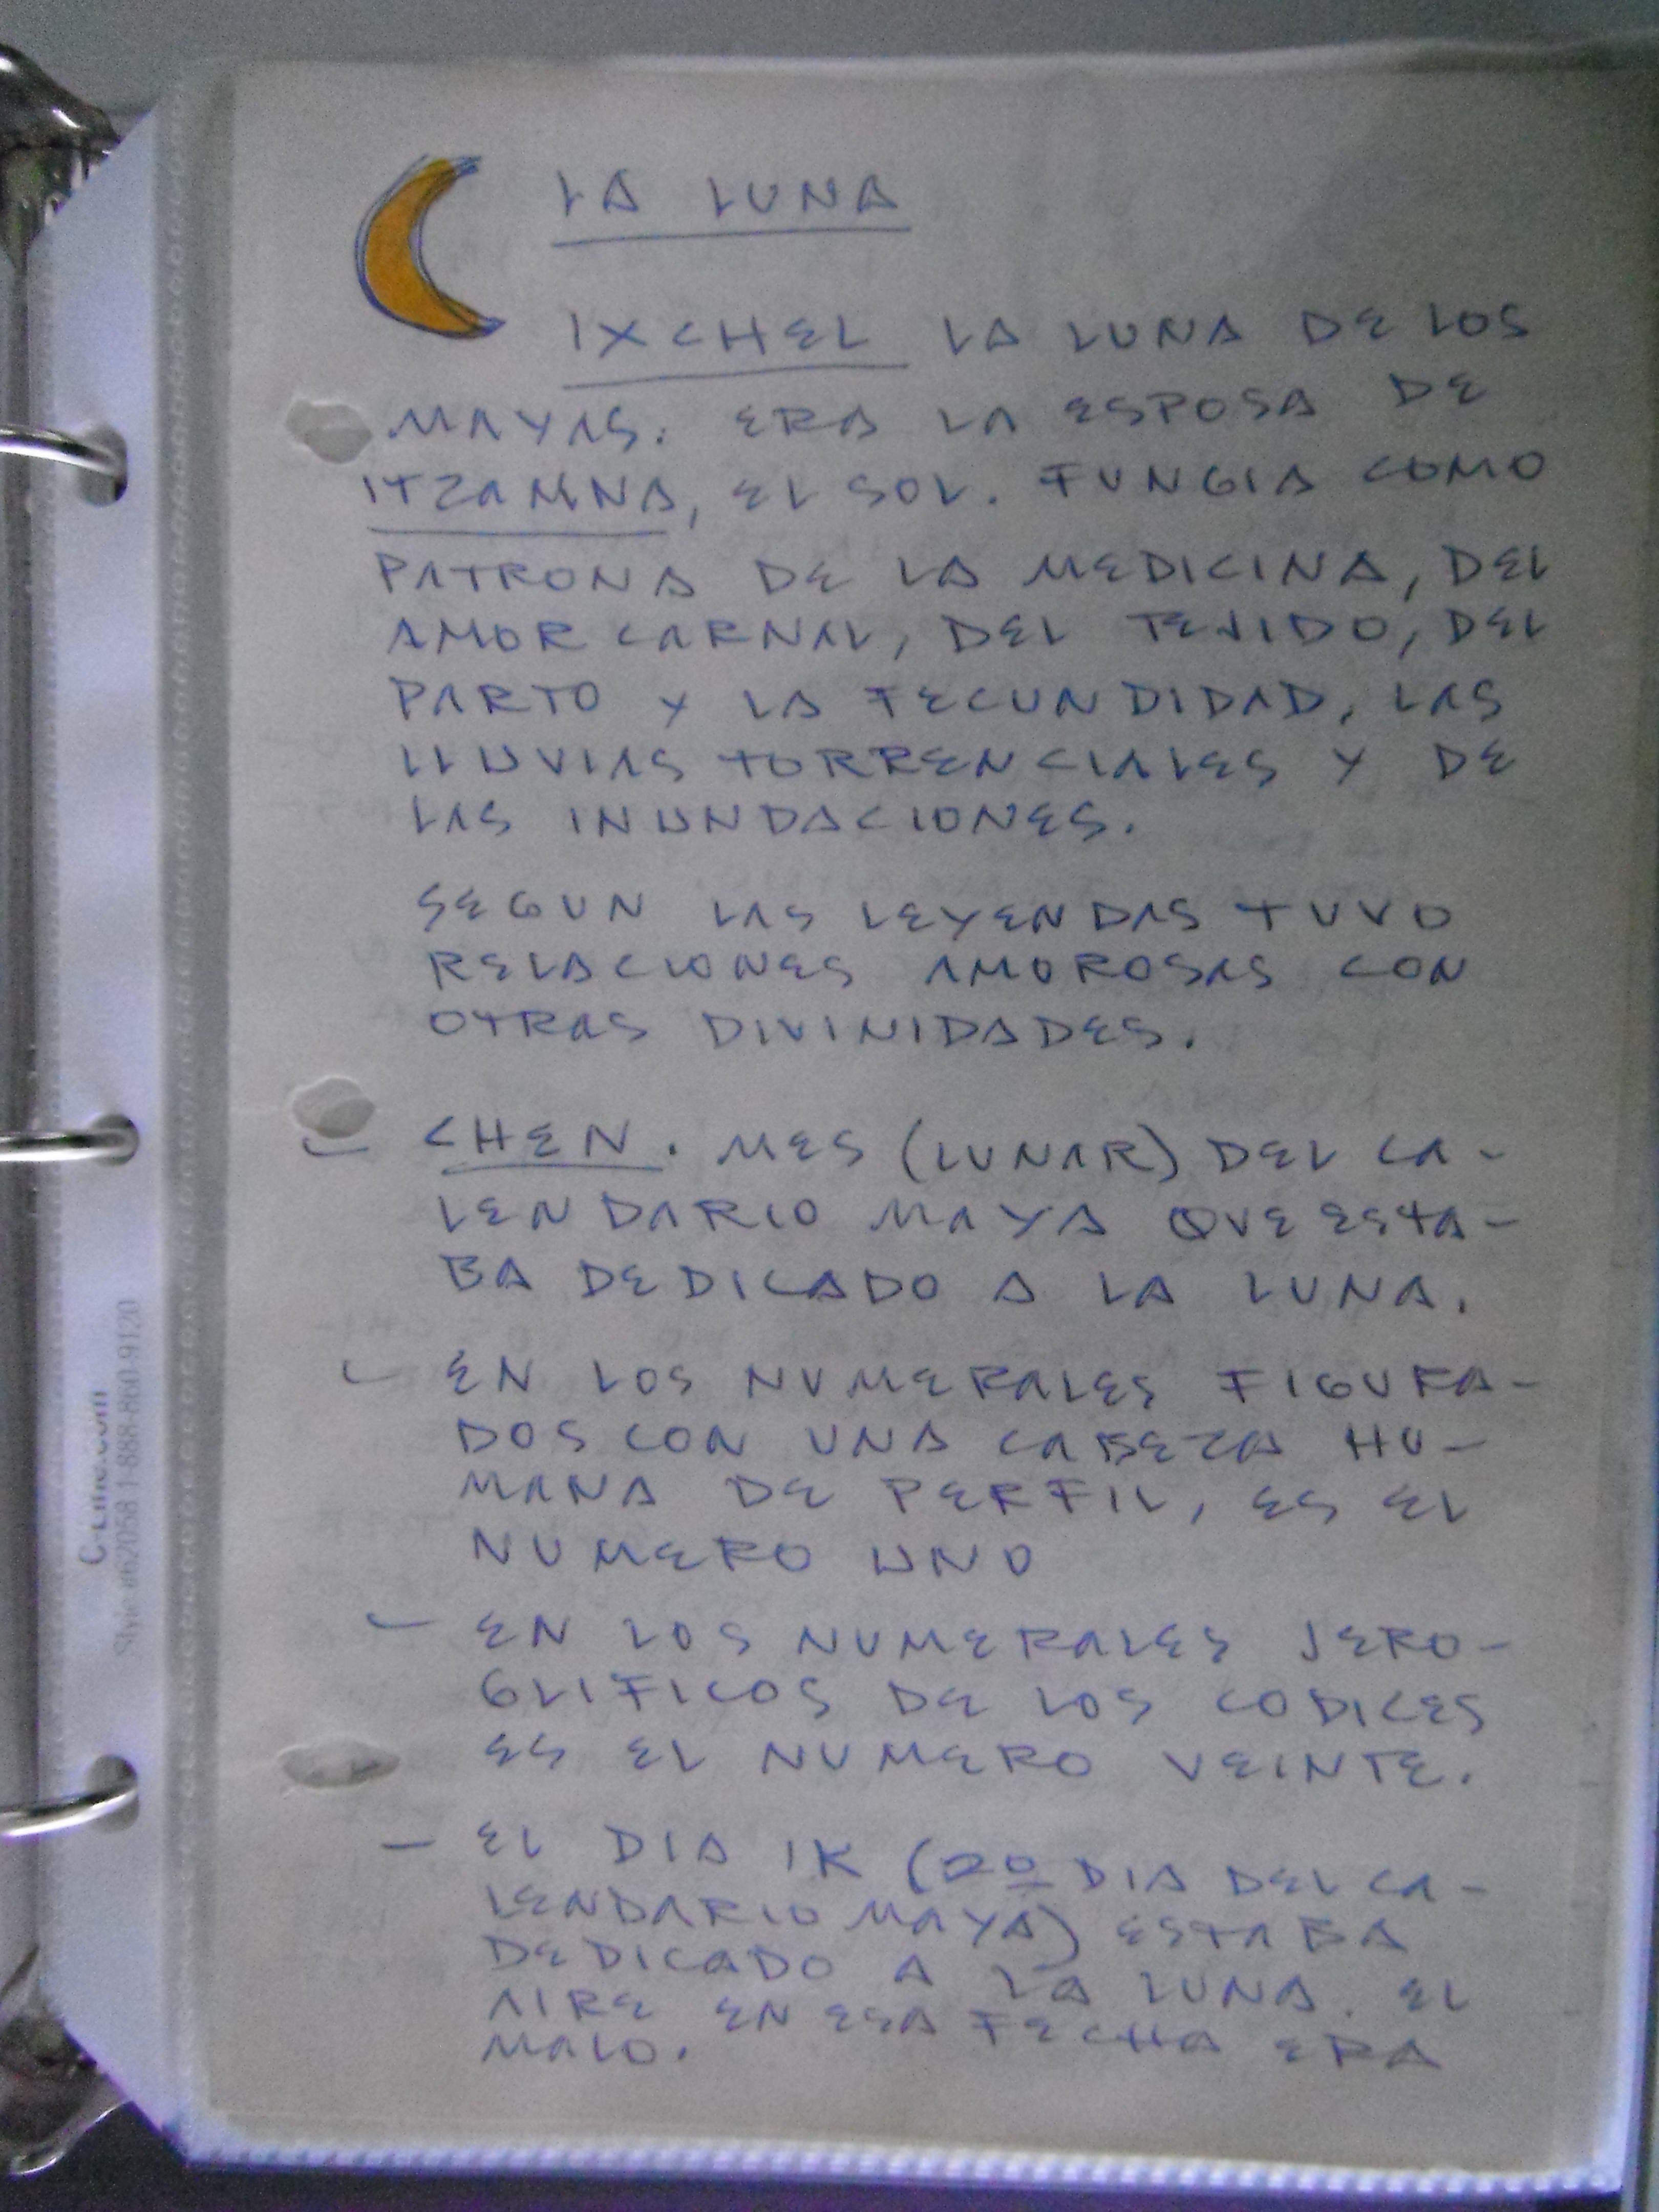 LA LUNA
IXCHEL LA LUNA DE LOS
MAYAS. ERA LA ESPOSA DE
ITZAMNA, EL SOL. FUNGIA COMO
PATRONA DE LA MEDICINA, DEL
AMOR CARNAL, DEL TEJIDO, DEL
PARTO Y LA FECUNDIDAD, LAS
LLUVIAS TORRENCIALES Y DE
LAS INUNDACIONES.
SEGUN LAS LEYENDAS TUVO
RELACIONES AMOROSAS CON
OTRAS DIVINIDADES.
- CHEN. MES (LUNAR) DEL CA-
LENDARIO MAYA QUE ESTA-
BA DEDICADO A LA LUNA.
- EN LOS NUMERALES FIGURA-
DOS CON UNA CABEZA HU-
MANA DE PERFIL, ES EL
NUMERO UNO
- EN LOS NUMERALES JERO-
GLIFICOS DE LOS CODICES
ES EL NUMERO VEINTE.
- EL DIA IK (2º DIA DEL CA-
LENDARIO MAYA) ESTABA
DEDICADO A LA LUNA. EL
AIRE EN ESA FECHA ERA
MALO.
C-Line.com
Style #62058 1-888-860-9120